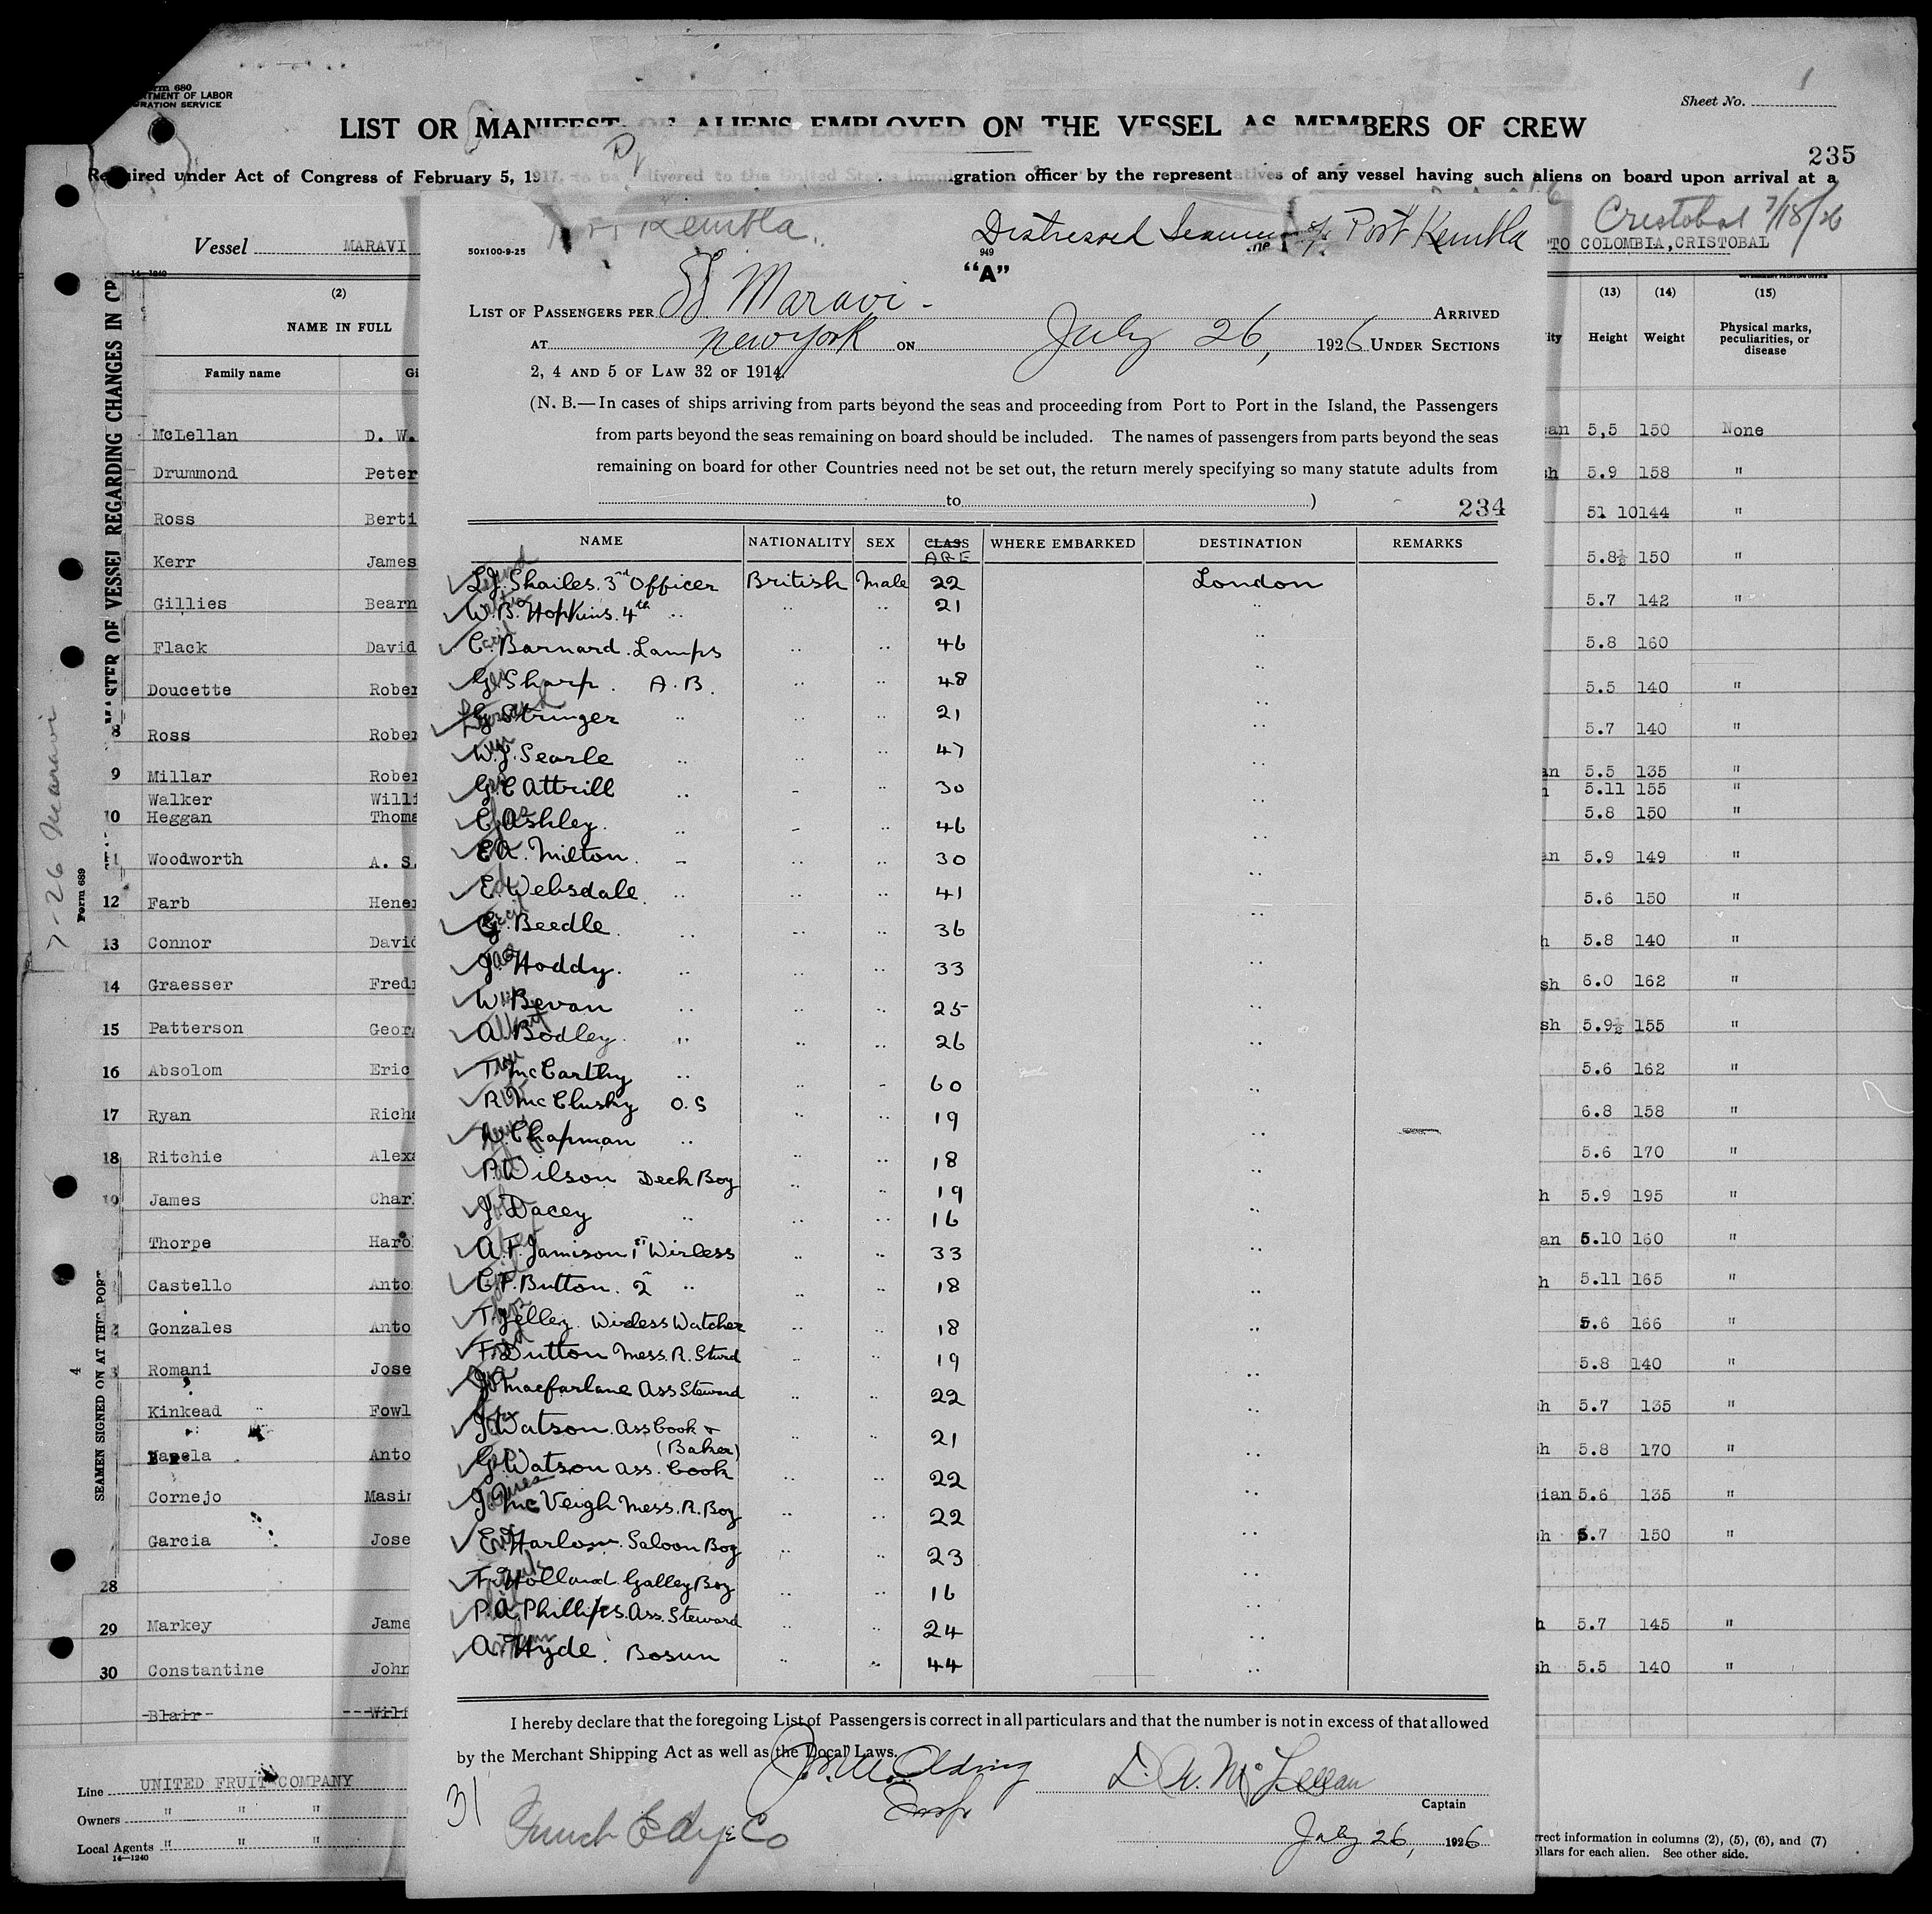 Form 680
Sheet No. 1
LIST OR MANIFEST OF ALIENS EMPLOYED ON THE VESSEL AS MEMBERS OF CREW
235
Required under Act of Congress of February 5, 1917, to be delivered to the United States immigration officer by the representatives of any vessel having such aliens on board upon arrival at a
Cristobal 7/18/26
Vessel MARAVI
TO COLOMBIA, CRISTOBAL
MASTER OF VESSEL REGARDING CHANGES IN
7-26 Maravi
Form 689
SEAMEN SIGNED ON AT THIS PORT
4
(2)
NAME IN FULL
Family name
(13) (14) (15)
Height Weight Physical marks, peculiarities, or disease
McLellan D. W. 5,5 150 None
Drummond Peter 5.9 158 "
Ross Berti 51 10 144 "
Kerr James 5.8½ 150 "
Gillies Bearn 5.7 142 "
Flack David 5.8 160
Doucette Rober 5.5 140 "
8 Ross Rober 5.7 140 "
9 Millar Rober 5.5 135 "
Walker Willi 5.11 155 "
10 Heggan Thoma 5.8 150 "
11 Woodworth A. S. 5.9 149 "
12 Farb Hener 5.6 150 "
13 Connor David 5.8 140 "
14 Graesser Fred 6.0 162 "
15 Patterson Georg 5.9½ 155 "
16 Absolom Eric 5.6 162 "
17 Ryan Richa 6.8 158 "
18 Ritchie Alexa 5.6 170 "
19 James Charl 5.9 195 "
Thorpe Haro 5.10 160 "
Castello Anto 5.11 165 "
Gonzales Anto 5.6 166 "
Romani Jose 5.8 140 "
Kinkead Fowl 5.7 135 "
Anto 5.8 170 "
Cornejo Masim 5.6 135 "
Garcia Jose 5.7 150 "
28
29 Markey Jame 5.7 145 "
30 Constantine John 5.5 140 "
Blair Wilf
Line UNITED FRUIT COMPANY
Owners " " "
Local Agents " " "
14—1240
rrect information in columns (2), (5), (6), and (7)
ollars for each alien. See other side.
Kembla
50x100-9-25
Distressed Seamen s/s Port Kembla
949
"A"
LIST OF PASSENGERS PER SS Maravi - ARRIVED
AT New York ON July 26, 1926 UNDER SECTIONS
2, 4 AND 5 OF LAW 32 OF 1914.
(N. B.—In cases of ships arriving from parts beyond the seas and proceeding from Port to Port in the Island, the Passengers
from parts beyond the seas remaining on board should be included. The names of passengers from parts beyond the seas
remaining on board for other Countries need not be set out, the return merely specifying so many statute adults from
to )
234
NAME NATIONALITY SEX CLASS AGE WHERE EMBARKED DESTINATION REMARKS
L.J. Shailes. 3rd Officer British Male 22 London
W.B. Hopkins. 4th .. .. .. 21 ..
C. Barnard. Lamps .. .. 46 ..
G. Sharp. A.B. .. .. 48 ..
G. Stringer .. .. .. 21 ..
W.J. Searle .. .. .. 47 ..
G.C Attrill .. - .. 30 ..
C. Ashley. .. - .. 46 ..
E.A. Milton. - .. .. 30 ..
E. Websdale. .. .. .. 41 ..
G. Beedle. .. .. .. 36 ..
J. Hoddy. .. .. .. 33 ..
W. Bevan .. .. .. 25 ..
A. Bodley. .. .. .. 26 ..
T. McCarthy .. .. - 60 ..
R. McClusky O.S .. .. 19 ..
W. Chapman .. .. .. 18 ..
P. Wilson Deck Boy .. .. 19 ..
J. Dacey .. .. .. 16 ..
A.F. Jamison 1st Wirless .. .. 33 ..
C.F. Button. 2 .. .. .. 18 ..
T. Jelley. Wireless Watcher .. .. 18 ..
F. Dutton Mess. R. Stwd .. .. 19 ..
J. Macfarlane Ass Steward .. .. 22 ..
J. Watson. Ass Cook & (Baker) .. .. 21 ..
G. Watson Ass. Cook .. .. 22 ..
J. McVeigh Mess. R. Boy .. .. 22 ..
E. Harlow. Saloon Boy .. .. 23 ..
F. Holland Galley Boy .. .. 16 ..
P.A. Phillips. Ass. Steward .. .. 24 ..
A. Hyde. Bosun .. .. 44 ..
I hereby declare that the foregoing List of Passengers is correct in all particulars and that the number is not in excess of that allowed
by the Merchant Shipping Act as well as the Local Laws.
D. W. McLellan
Captain
Insp
31
Funch Edye & Co
July 26, 1926